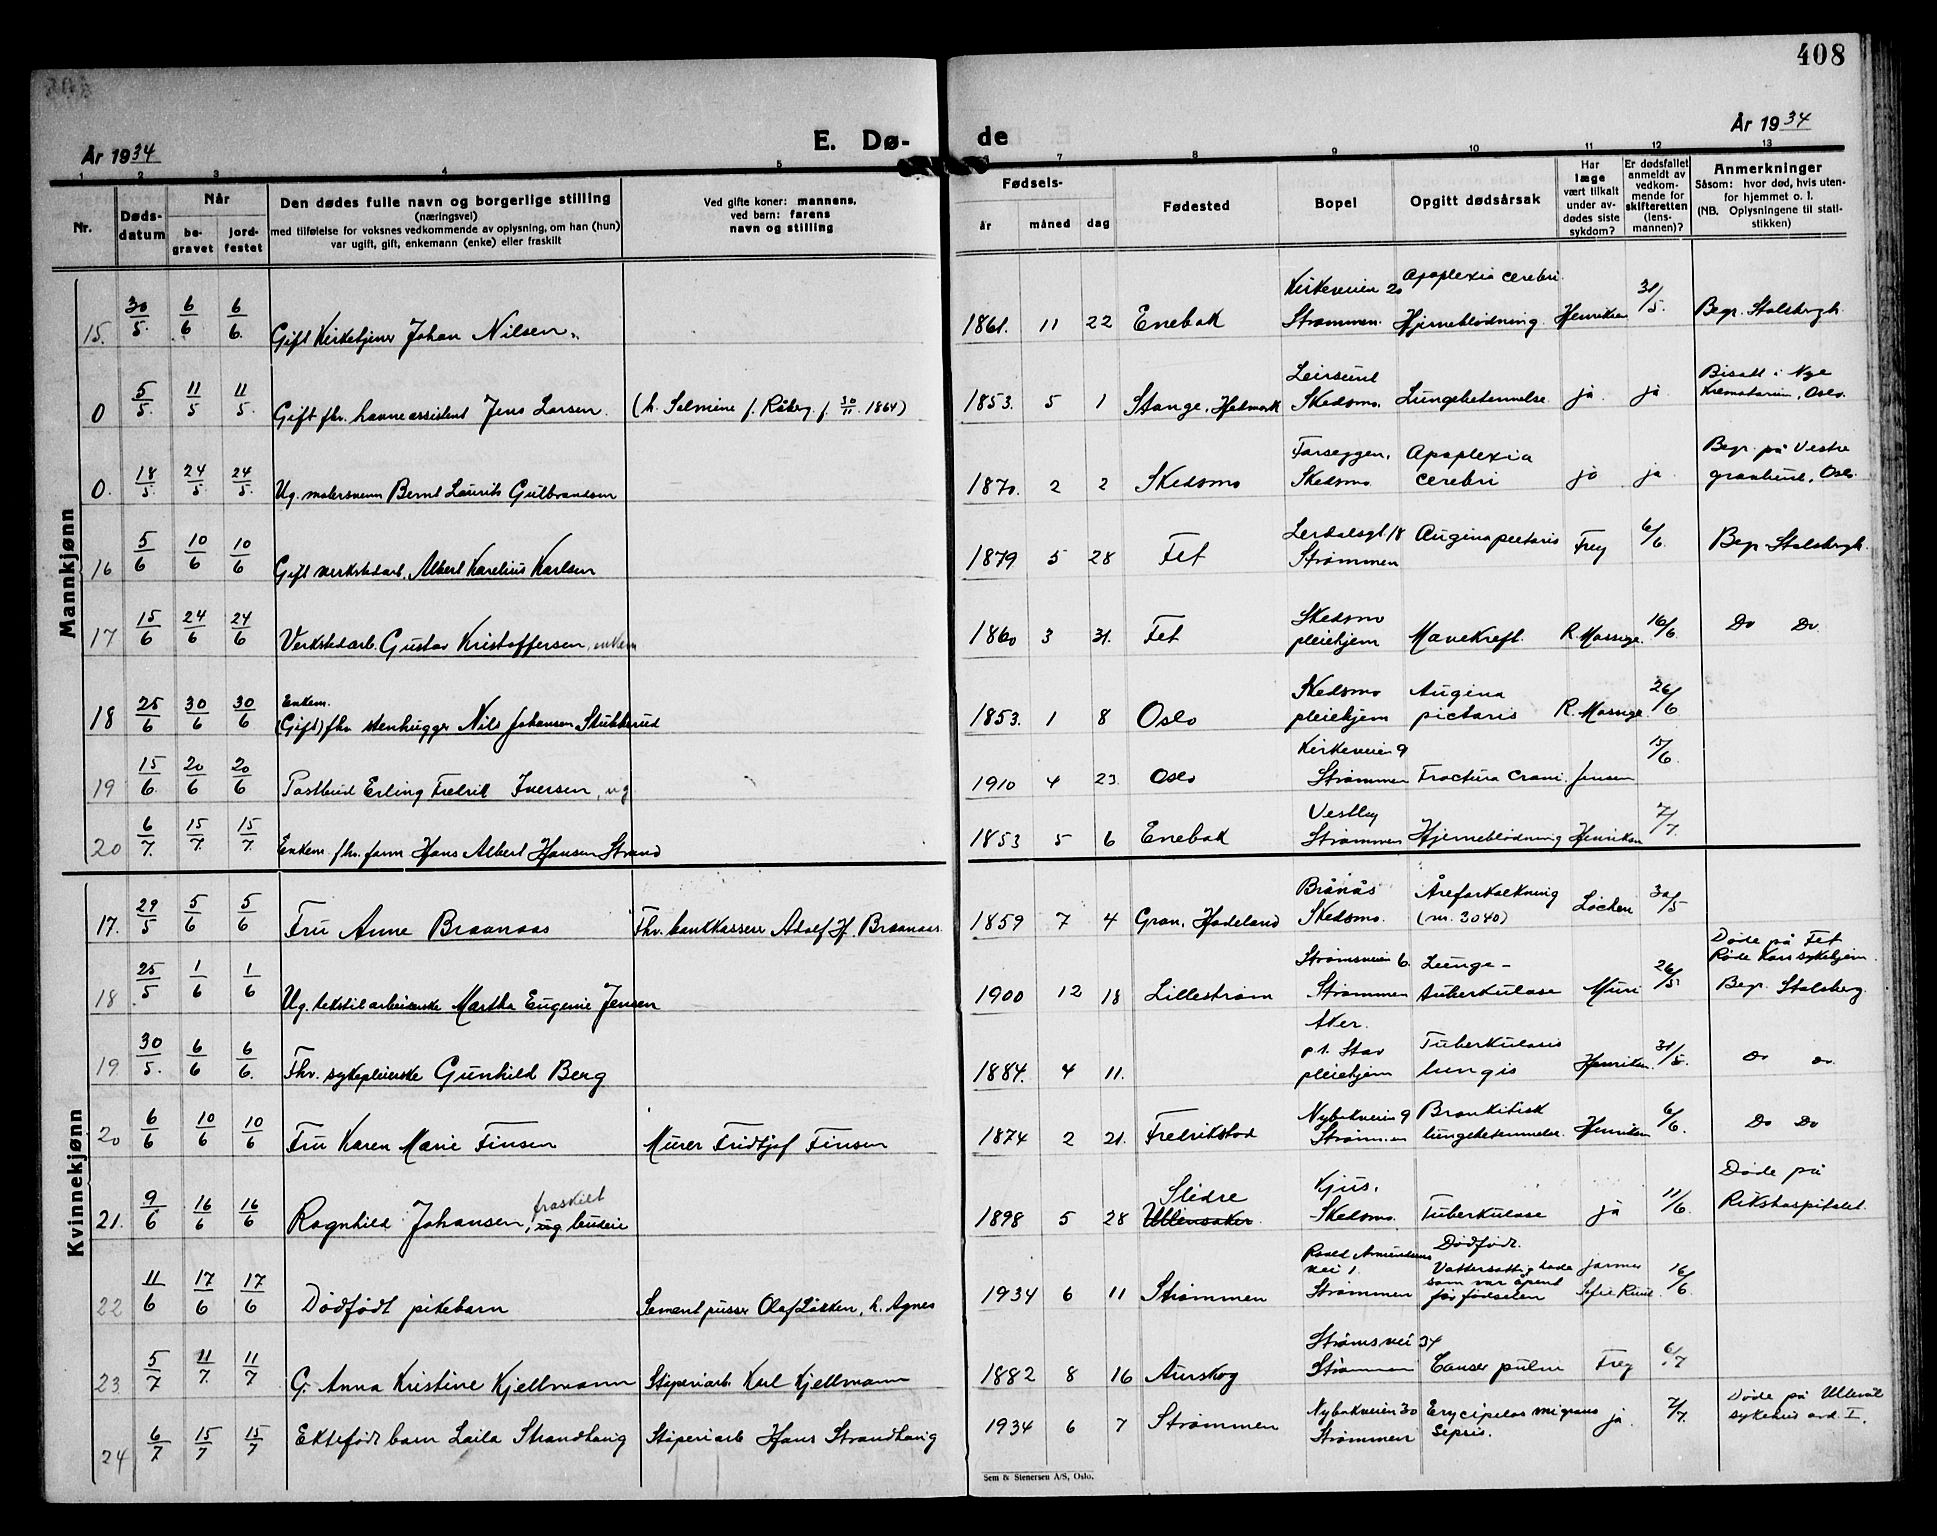 408
År 1934
E. Dø-
de
År 1934
1 2 3 4 5 6 7 8 9 10 11 12 13
Nr.
Døds-
datum
Når
be-
gravet
jord-
festet
Den dødes fulle navn og borgerlige stilling
(næringsvei)
med tilføielse for voksnes vedkommende av oplysning, om han (hun)
var ugift, gift, enkemann (enke) eller fraskilt
Ved gifte koner: mannens,
ved barn: farens
navn og stilling
Fødsels-
år måned dag
Fødested
Bopel
Opgitt dødsårsak
Har
læge
vært tilkalt
under av-
dødes siste
sykdom?
Er dødsfallet
anmeldt av
vedkom-
mende for
skifteretten
(lens-
mannen)?
Anmerkninger
Såsom: hvor død, hvis uten-
for hjemmet o. l.
(NB. Oplysningene til stati-
stikken)
Mannkjønn
15. 30/5. 6/6 6/6. Gift Kirketjener Johan Nilsen. 1861. 11 22 Enebak Kirkeveien 20 Strømmen. Apoplexia cerebri. Hjerneblødning. Henriksen 31/5. Begr. Stalsbergh.
0 5/5. 11/5 11/5. Gift fhv. havneassistent Jens Larsen. (h. Selmine f. Råberg f. 30/11 1864) 1853. 5 1 Stange, Hedmark Leirsund Skedsmo. Lungebetennelse ja. ja. Bisatt i Nye Krematorium, Oslo.
0. 18/5. 24/5 24/5. Ug. malersvenn Bernt Laurits Gulbrandsen 1870. 2 2 Skedsmo Farseggen, Skedsmo. Apoplexia cerebri ja ja Begr. på Vestre gravlund, Oslo.
16 5/6 10/6 10/6 Gift verkstedarb. Albert Karelius Karlsen 1879 5 28 Fet Lerdalsgt 18 Strømmen Angina pectoris Frey 6/6. Begr. Stalsbergh.
17 15/6 24/6 24/6 Verkstedarb. Gustav Kristoffersen, enkem 1860 3 31. Fet Skedsmo pleiehjem Mavekreft. R. Massige. 16/6. Do Do
18 25/6 30/6 30/6 Enkem. (Gift) fhv. stenhugger Nils Johansen Stubberud 1853. 1 8 Oslo Skedsmo pleiehjem Angina pictoris R. Massige. 26/6
19 15/6. 20/6 20/6 Postbud Erling Fredrik Iversen, ug 1910 4 23. Oslo Kirkeveien 9 Strømmen Fractura crani. Jensen 15/6.
20 6/7. 15/7. 15/7. Enkem. fhv. form Hans Albert Hansen Strand 1853 5 6 Enebak Vestby Strømmen Hjerneblødning Henriksen 7/7.
Kvinnekjønn
17. 29/5 5/6 5/6 Fru Anne Braanaas Fhv. bankkasserer Adolf H. Braanaas. 1859 7 4 Gran, Hadeland Brånås Skedsmo. Åreforkalkning (nr. 3040) Løchen 30/5
18 25/5 1/6 1/6 Ug. tekstilarbeiderske Martha Eugenie Jensen 1900 12 18 Lillestrøm Strømsveien 6. Strømmen Lunge-tuberkulose Muri 26/5. Døde på Fet Røde Kors sykehjem. Begr. Stalsberg.
19 30/5. 6/6 6/6. Fhv. sykepleierske Gunhild Berg 1884. 4 11. Aker. p.t. Stav pleiehjem Tuberkulosis lungis Henriksen. 31/5. Do Do.
20 6/6 10/6 10/6 Fru Karen Marie Finsen Murer Fridtjof Finsen 1874 2 21. Fredrikstad Nybakveien 9 Strømmen Bronkitisk lungebetennelse. Henriksen 6/6. Do Do
21. 9/6 16/6 16/6 Ragnhild Johansen, fraskilt ug budeie 1898 5 28 Slidre Ullensaker. Kjus, Skedsmo. Tuberkulose ja 11/6. Døde på Rikshospitalet.
22 11/6 17/6 17/6 Dødfødt pikebarn Sementpusser Olaf Løkken, h. Agnes 1934 6 11 Strømmen Roald Amundsens vei 1. Strømmen Dødfødt. Vattersottig hode som var åpent før fødselen jormor Sofie Ruud. 16/6.
23 5/7 11/7. 11/7 G. Anna Kristine Kjellmann Støperiarb. Karl Kjellmann 1882 8 16 Aurskog Strømsvei 34 Strømmen Canser pulm Frey 6/7
24 6/7 15/7 15/7 Ektefødt barn Laila Strandhaug Støperiarb Hans Strandhaug 1934 6 7 Strømmen Nybakveien 30 Strømmen Erycipelas migrans Sepsis. ja. 7/7. Døde på Ullevål sykehus avd. I.
Sem & Stenersen A/S, Oslo.